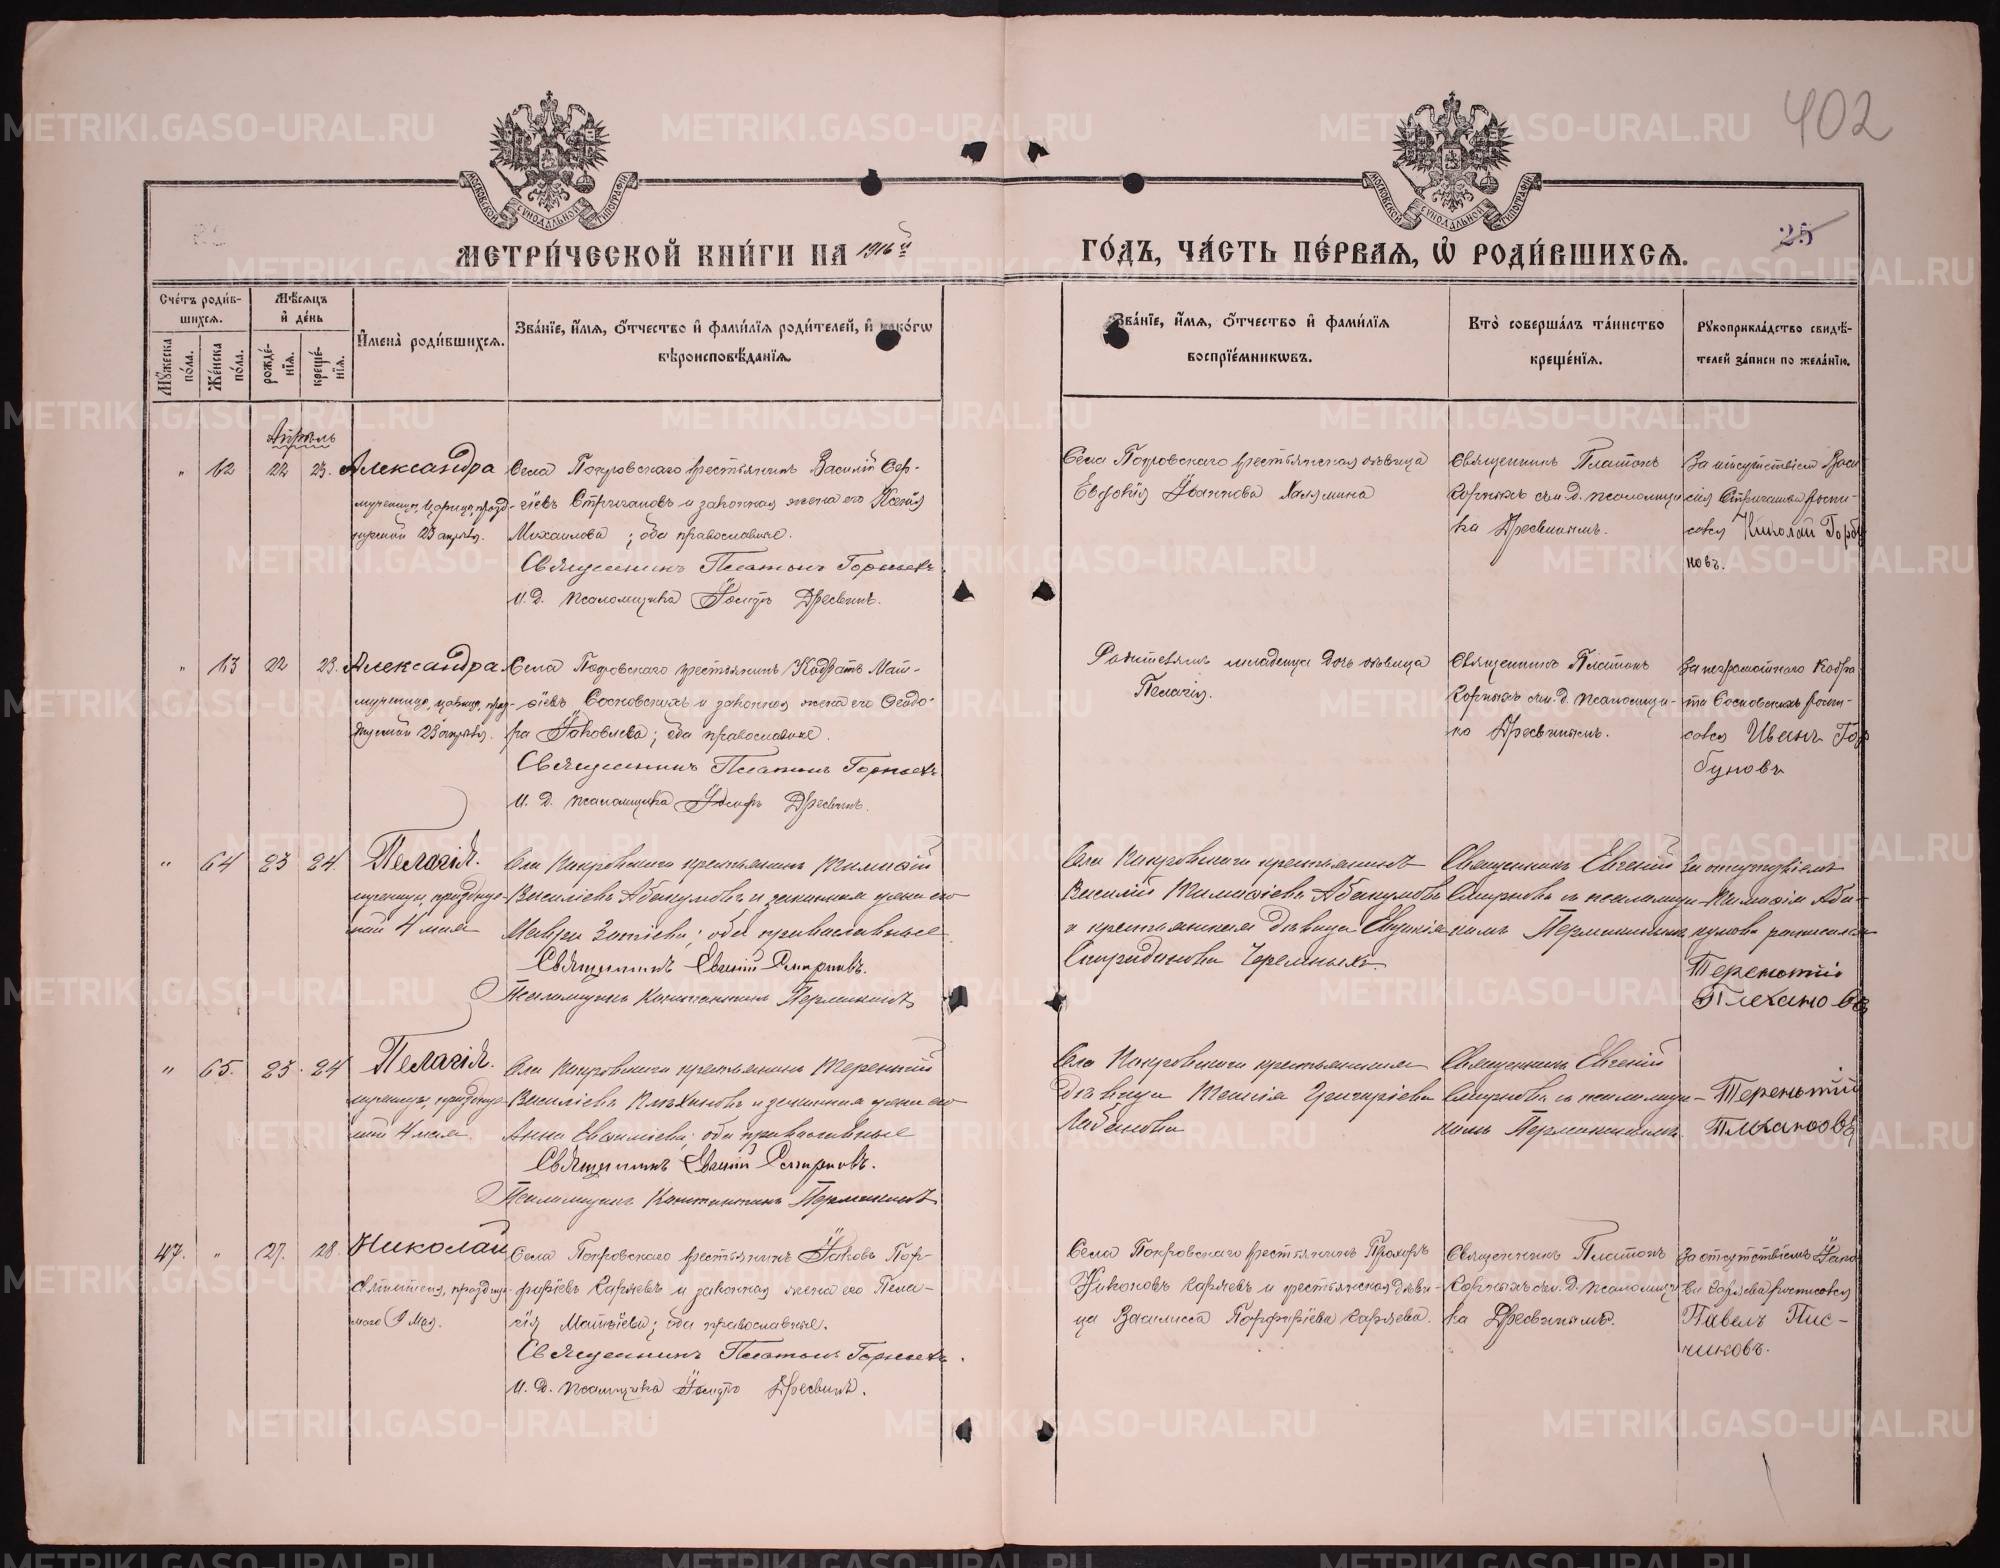 402
25
МОСКОВСКОЙ СѴНОДАЛЬНОЙ ТИПОГРАФІИ
МОСКОВСКОЙ СѴНОДАЛЬНОЙ ТИПОГРАФІИ
МЕТРИ́ЧЕСКОЙ КНИ́ГИ НА 1916й ГО́ДЪ, ЧА́СТЬ ПЕ́РВАЯ, Ѡ҆ РОДИ́ВШИХСЯ.
Сче́тъ роди́в-
шихся.
Мꙋ́жеска по́ла.
Же́нска по́ла.
Мѣ́сяцъ
и҆ де́нь
рожде́-
нїя.
креще́-
нїя.
И҆мена̀ роди́вшихся.
Зва́нїе, и҆́мя, ѻ҆́тчество и҆ фами́лїя роди́телей, и҆ како́гѡ
вѣроисповѣ́данїя.
Зва́нїе, и҆́мя, ѻ҆́тчество и҆ фами́лїя
воспрїе́мникѡвъ.
Кто̀ соверша́лъ та́инство
креще́нїя.
Рꙋкоприкла́дство свидѣ́-
телей за́писи по жела́нїю.
Апрѣль
" 62 22 23. Александра
мученицы, царицы, празд-
нуемой 23 апрѣля.
Села Покровскаго крестьянинъ Василій Сер-
гіевъ Стригановъ и законная жена его Ксенія
Михаилова; оба православные.
Священникъ Платонъ Горныхъ.
И. д. псаломщика Іосифъ Дресвинъ.
Села Покровскаго крестьянская дѣвица
Евдокія Іоаннова Халямина
Священникъ Платонъ
Горныхъ съ и. д. псаломщи
ка Дресвинымъ.
За отсутствіем Васи
лія Стриганова роспи-
сался Николай Горбу
новъ.
" 63 22 23. Александра
мученицы, царицы, празд-
нуемой 23 апрѣля.
Села Покровскаго крестьянинъ Кодратъ Мат-
ѳіевъ Сосновскихъ и законная жена его Ѳеодо-
ра Іаковлева; оба православные.
Священникъ Платонъ Горныхъ
И. д. псаломщика Іосифъ Дресвинъ.
младенца дочь дѣвица
Пелагія.
Священникъ Платонъ
Горныхъ съ и. д. псаломщи-
ка Дресвинымъ.
За неграмотнаго Кодра-
та Сосновскихъ роспи-
сался Иванъ Гор
буновъ
" 64 23 24. Пелагія.
мученицы, праздну-
мой 4 мая
Села Покровскаго крестьянинъ Тимоѳій
Василіевъ Абакумовъ и законная жена его
Мавра Зотіева; оба православные
Священникъ Евгеній Смирновъ.
Псаломщикъ Константинъ Пермикинъ
Села Покровскаго крестьянинъ
Василій Тимоѳіевъ Абакумовъ
и крестьянская дѣвица Евдокія
Спиридонова Черемныхъ.
Священникъ Евгеній
Смирновъ съ псаломщи-
комъ Пермикинымъ
За отсутствіемъ
Тимоѳія Аба-
кумова росписался
Терентій
Плехановъ
" 65. 23. 24 Пелагія.
мученицы, праздну-
мой 4 мая.
Села Покровскаго крестьянинъ Терентій
Василіевъ Плѣхановъ и законная жена его
Анна Евѳиміева; оба православные
Священникъ Евгеній Смирновъ.
Псаломщикъ Константинъ Пермикинъ
Села Покровскаго крестьянская
дѣвица Григоріева
Лобанова
Священникъ Евгеній
Смирновъ съ псаломщи-
комъ Пермикинымъ.
Терентій
Плехановъ
47. " 27. 28. Николай
Святителя, празднуе-
маго 9 мая.
Села Покровскаго крестьянинъ Іаковъ Пор-
фиріевъ Коряевъ и законная жена его Пела-
гія Матѳіева; оба православные.
Священникъ Платонъ Горныхъ.
И. д. псаломщика Іосифъ Дресвинъ.
Села Покровскаго крестьянинъ Прохоръ
Никоновъ Коряевъ и крестьянская дѣви-
ца Васса Порфиріева Коряева.
Священникъ Платонъ
Горныхъ съ и. д. псаломщи
ка Дресвинымъ.
За отсутствіемъ Іако
ва Коряева росписался
Павелъ Пис-
чиковъ.
METRIKI.GASO-URAL.RU